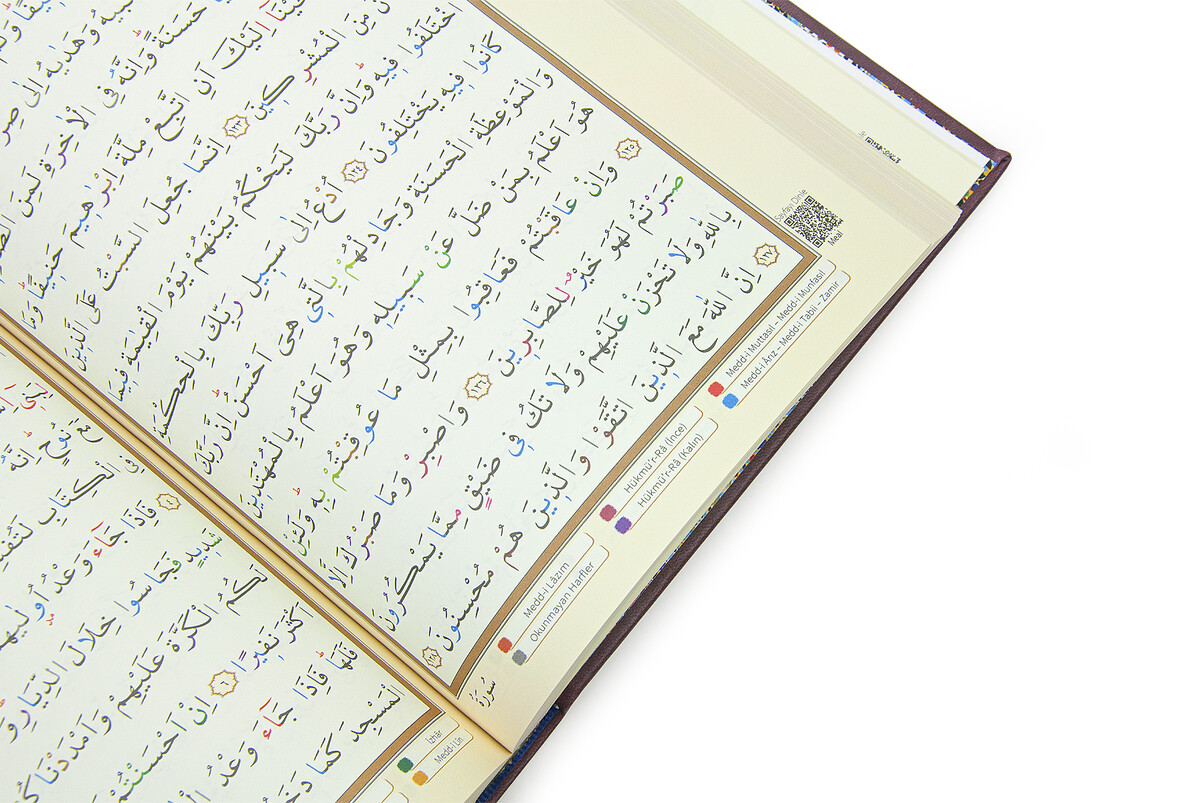 وَهَدٰيهُ اِلٰى
حَسَنَةً وَاِنَّهُ فِى الْاٰخِرَةِ لَمِنَ
اِلَيْكَ اَنِ اتَّبِعْ مِلَّةَ اِبْرٰه۪يمَ حَن۪يفًا وَمَا
مِنَ الْمُشْرِك۪ينَ ﴿١٢٣﴾ اِنَّمَا جُعِلَ السَّبْتُ عَلَى الَّذ۪ينَ
اخْتَلَفُوا ف۪يهِ وَاِنَّ رَبَّكَ لَيَحْكُمُ بَيْنَهُمْ يَوْمَ الْقِيٰمَةِ ف۪يمَا
كَانُوا ف۪يهِ يَخْتَلِفُونَ ﴿١٢٤﴾ اُدْعُ اِلٰى سَب۪يلِ رَبِّكَ بِالْحِكْمَةِ
وَالْمَوْعِظَةِ الْحَسَنَةِ وَجَادِلْهُمْ بِالَّت۪ى هِىَ اَحْسَنُ اِنَّ رَبَّكَ
هُوَ اَعْلَمُ بِمَنْ ضَلَّ عَنْ سَب۪يلِه۪ وَهُوَ اَعْلَمُ بِالْمُهْتَد۪ينَ
﴿١٢٥﴾ وَاِنْ عَاقَبْتُمْ فَعَاقِبُوا بِمِثْلِ مَا عُوقِبْتُمْ بِه۪ وَلَئِنْ
صَبَرْتُمْ لَهُوَ خَيْرٌ لِلصَّابِر۪ينَ ﴿١٢٦﴾ وَاصْبِرْ وَمَا صَبْرُكَ اِلَّا
بِاللّٰهِ وَلَا تَحْزَنْ عَلَيْهِمْ وَلَا تَكُ ف۪ى ضَيْقٍ مِمَّا يَمْكُرُونَ
﴿١٢٧﴾ اِنَّ اللّٰهَ مَعَ الَّذ۪ينَ اتَّقَوْا وَالَّذ۪ينَ هُمْ مُحْسِنُونَ ﴿١٢٨﴾
Sayfayı Dinle
Meal
Medd-i Muttasıl - Medd-i Munfasıl
Medd-i Arız - Medd-i Tabii - Zamir
Hükmü'r-Râ (İnce)
Hükmü'r-Râ (Kalın)
Medd-i Lâzım
Okunmayan Harfler
سُورَةُ
مَعَ نُوحٍ اِنَّهُ
فِى الْكِتَابِ
﴿٤﴾ فَاِذَا جَٓاءَ وَعْدُ اُو۫لٰيهُمَا
شَد۪يدٍ فَجَاسُوا خِلَالَ الدِّيَارِ
لَكُمُ الْكَرَّةَ عَلَيْهِمْ وَاَمْدَدْنَاكُمْ
اَكْثَرَ نَف۪يرًا ﴿٦﴾ اِنْ اَحْسَنْتُمْ
فَلَهَا فَاِذَا جَٓاءَ وَعْدُ
الْمَسْجِدَ كَمَا
İzhâr
Medd-i Lîn